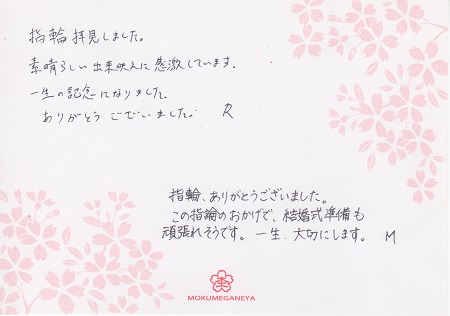 指輪拝見しました。
素晴らしい出来映えに感激しています。
一生の記念になりました。
ありがとうございました。 R
指輪、ありがとうございました。
この指輪のおかげで、結婚式準備も
頑張れそうです。一生、大切にします。 M
MOKUMEGANEYA